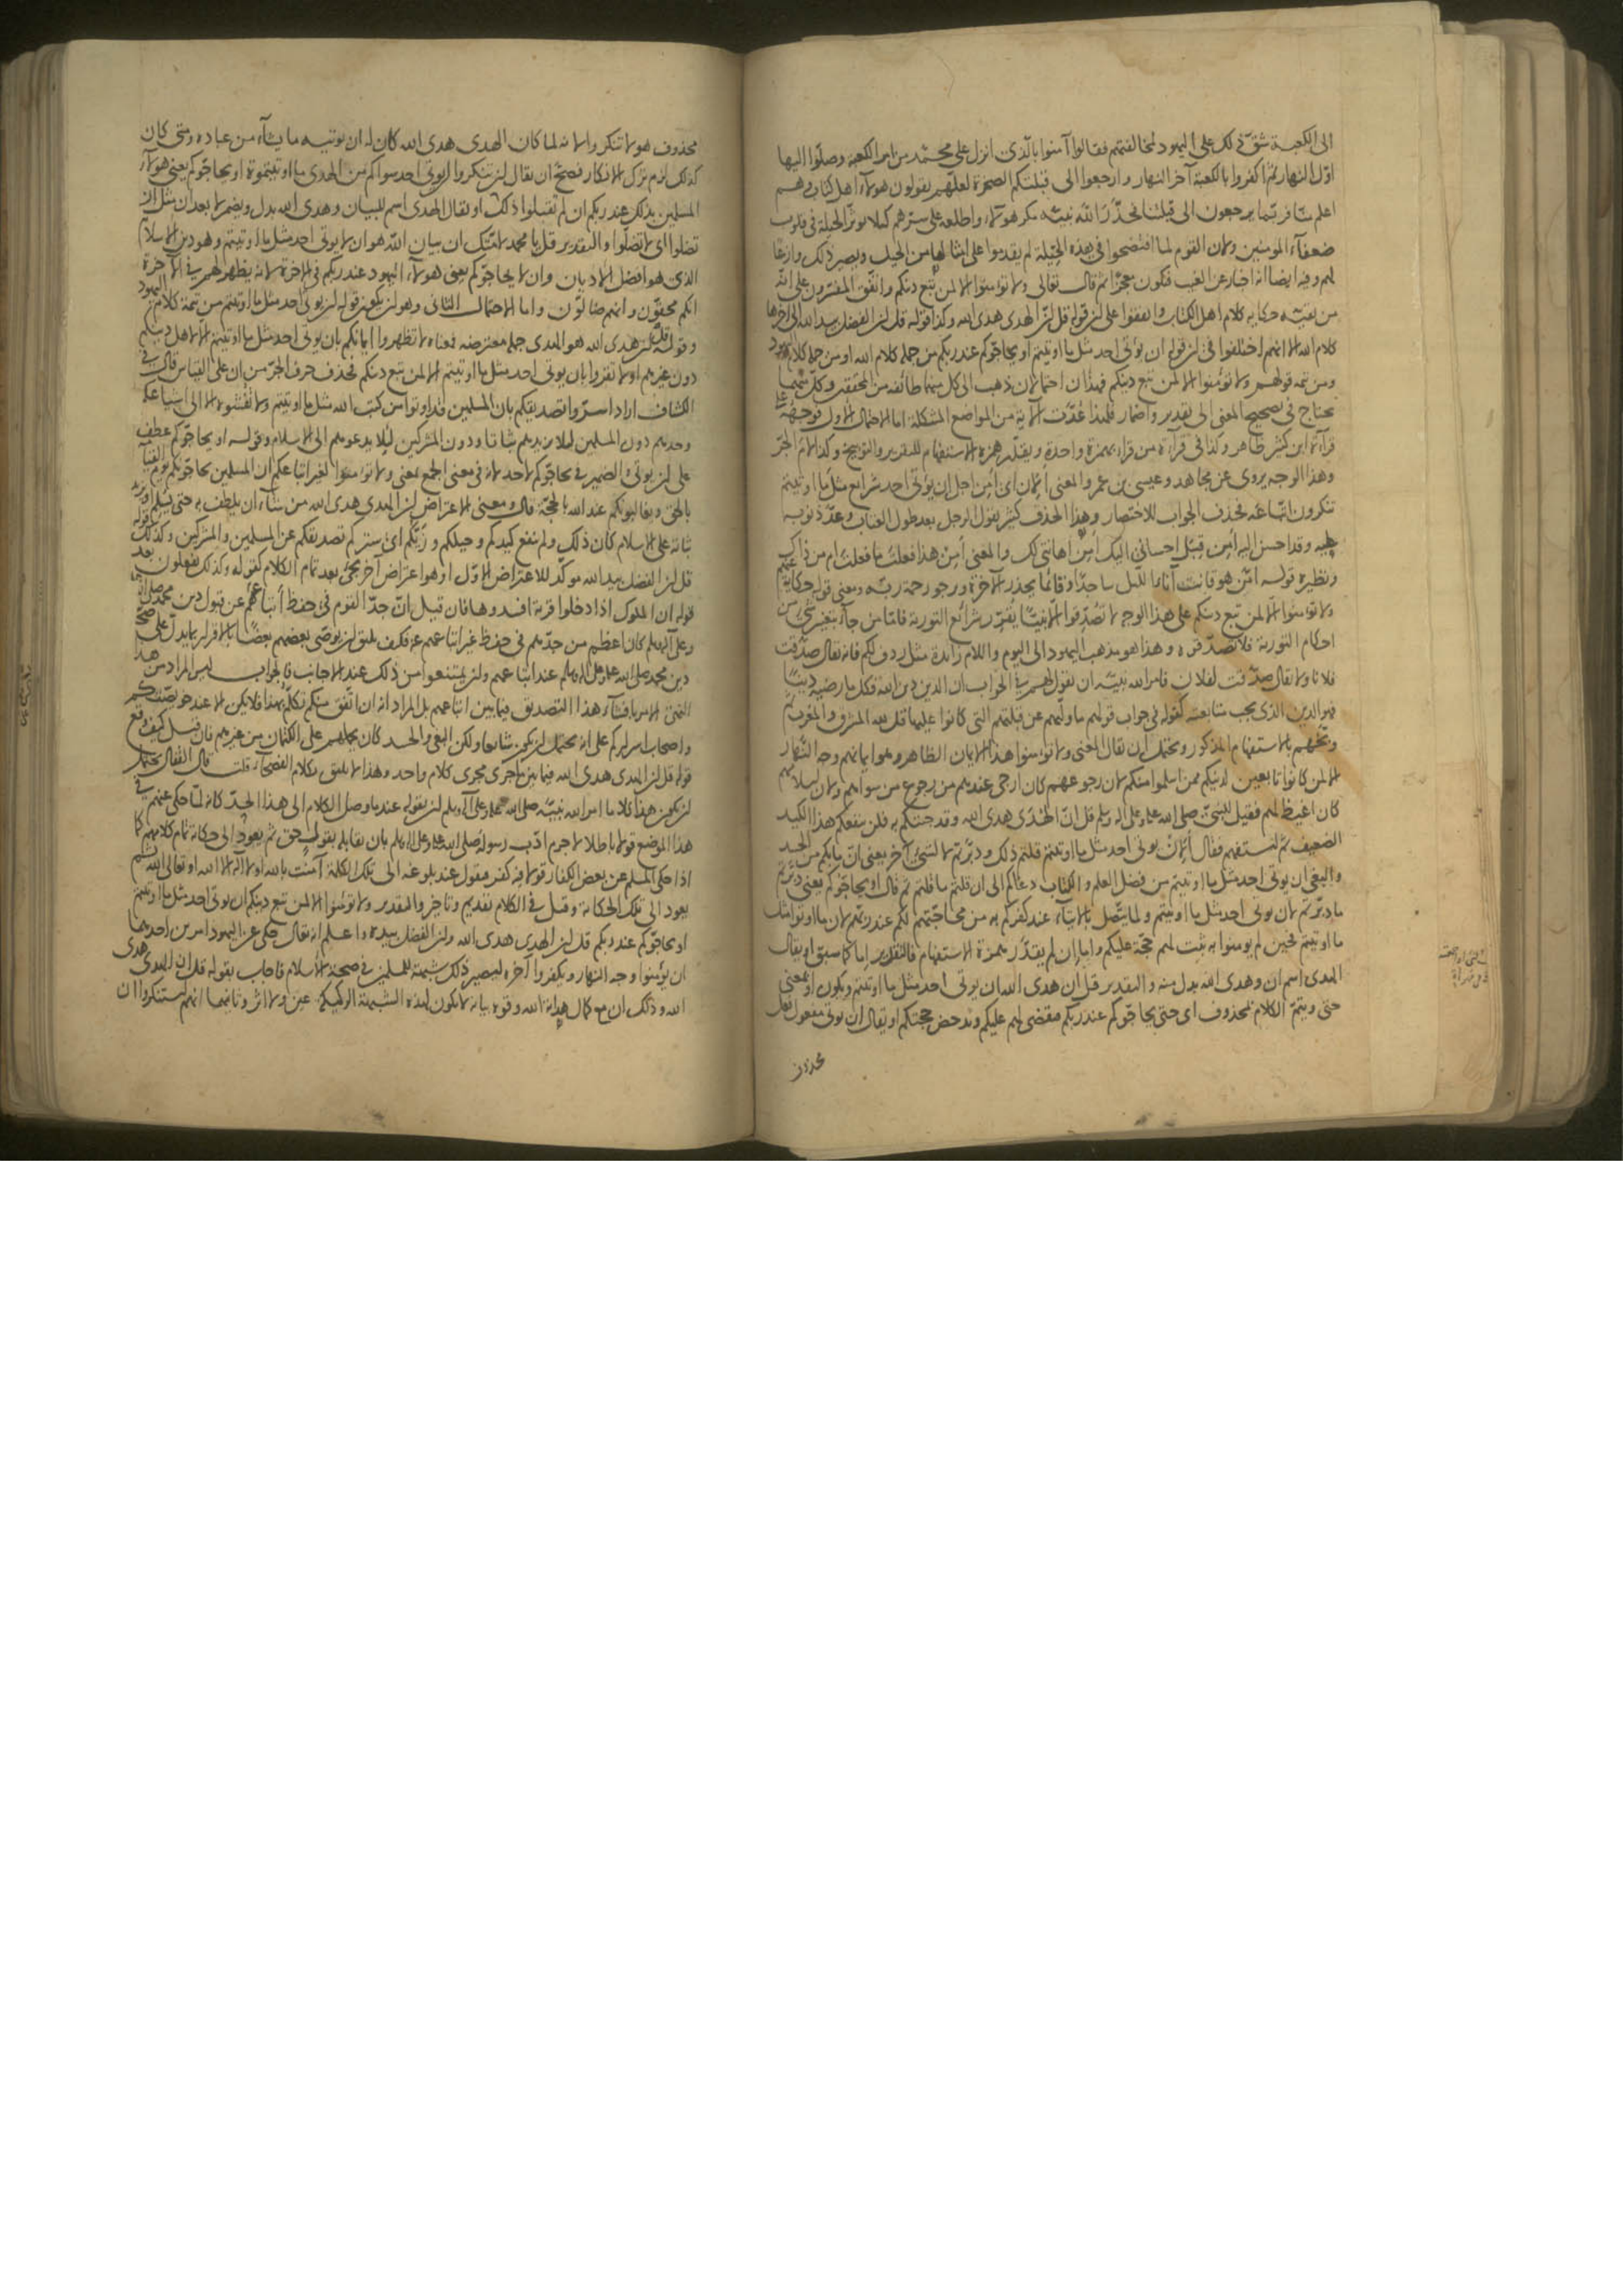 الى الكعبة شق ذلك على اليهود لمخالفتهم فقالوا آمنوا بالذى انزل على محمد من امر الكعبة وصلوا اليها
اول النهار ثم اكفروا بالكعبة آخر النهار وارجعوا الى قبلتكم الصخرة لعلهم يقولون هولاء اهل كتاب وهم
اعلم منا فربما يرجعون الى قبلتنا فحذر الله نبيه مكر هولاء واطلعه على سترهم كيلا يوثر الحيلة فى قلوب
ضعفاء المومنين ولان القوم لما افتضحوا فى هذه الحيلة لم يقدموا على امثالها من الحيل ويصير ذلك وازعا
لهم وفيه ايضا انه اخبار عن الغيب فيكون معجزا ثم قال تعالى ولا تومنوا الا لمن تبع دينكم واتفق المفسرون على انه
من بقيه حكاية كلام اهل الكتاب واتفقوا على ان قوله قل ان الهدى هدى الله وكذا قوله قل ان الفضل بيد الله الى آخرها
كلام الله الا انهم اختلفوا فى ان قوله ان يوتى احد مثل ما اوتيتم او يحاجوكم عند ربكم من جملة كلام الله او من جملة كلام اليهود
ومن تتمة قولهم ولا تومنوا الا لمن تبع دينكم فهذان احتمالان ذهب الى كل منهما طائفة من المحققين وكل منهما
يحتاج فى تصحيح المعنى الى تقدير واضمار فلهذا عدت الاية من المواضع المشكلة اما الاحتمال الاول فوجهه على
قراءة ابن كثير ظاهر وكذا فى قراءة من قراء بهمزة واحدة ويقدر همزة الاستفهام للتقرير والتوبيخ وكذا لام الجر
وهذا الوجه يروى عن مجاهد وعيسى بن عمر والمعنى أ لان اى أمن اجل ان يوتى احد شرايع مثل ما اوتيتم
تنكرون اتباعه فحذف الجواب للاختصار وهذا الحذف كثير يقول الرجل بعد طول العتاب وعد ذنوبه
عليه وقد احسن اليه أمن قبل احسانى اليك أمن اهانتى لك والمعنى أمن هذا فعلت ما فعلت ام من ذاك
ونظيره قوله امن هو قانت آناء الليل ساجدا وقائما يحذر الاخرة ويرجو رحمة ربه ومعنى قوله حكاية عنهم
ولا تومنوا الا لمن تبع دينكم على هذا الوجه لا تصدقوا الا نبيا يقرر شرائع التورية فاما من جاء بتغيير شىء من
احكام التورية فلا تصدقوه وهذا هو مذهب اليهود الى اليوم واللام زائدة مثل ردف لكم فانه يقال صدقت
فلانا ولا يقال صدقت لفلان فامر الله نبيه ان يقول لهم فى الجواب ان الدين دين الله فكل ما رضيه دينا
فهو الدين الذى يجب متابعته كقوله فى جواب قولهم ما وليهم عن قبلتهم التى كانوا عليها قل لله المشرق والمغرب ثم
وبخهم بالاستفهام المذكور ويحتمل ان يقال المعنى ولا تومنوا هذا الايمان الظاهر وهو ايمانهم وجه النهار
الا لمن كانوا تابعين لدينكم ممن اسلموا منكم لان رجوعهم كان ارجى عندهم من رجوع من سواهم ولان اسلامهم
كان اغيظ لهم فقيل للنبى صلى الله عليه وعلى اله وسلم قل ان الهدى هدى الله وقد جئتكم به فلن ينفعكم هذا الكيد
الضعيف ثم استفهم فقال أ لان يوتى احد مثل ما اوتيتم قلتم ذلك ودبرتم لا لشىء آخر يعنى ان ما بكم من الحسد
والبغى ان يوتى احد مثل ما اوتيتم من فضل العلم والكتاب دعاكم الى ان قلتم ما قلتم ثم قال او يحاجوكم يعنى دبرتم
ما دبرتم لان يوتى احد مثل ما اوتيتم ولما يتصل بالايتاء عند كفركم به من محاجتهم لكم عند ربكم لان ما اوتوا مثل
ما اوتيتم فحين لم يومنوا به ثبت لهم حجة عليكم واما ان لم يقدر همزة الاستفهام فالتقدير اما كما سبق او يقال
الهدى اسم ان وهدى الله بدل منه والتقدير قل ان هدى الله ان يوتى احد مثل ما اوتيتم ويكون او بمعنى
حتى ويتم الكلام بمحذوف اى حتى يحاجوكم عند ربكم فيقضى لهم عليكم ويدحض حجتكم او يقال ان يوتى مفعول فعل
محذوف
محذوف هو لا تنكروا لانه لما كان الهدى هدى الله كان له ان يوتيه ما يشاء من عباده ومتى كان
كذلك لزم ترك الانكار فصح ان يقال لن تنكروا ان يوتى احد سواكم من الهدى ما اوتيتموه او يحاجوكم يعنى هولاء
المسلمين بذلك عند ربكم ان لم تقبلوا ذلك او يقال الهدى اسم للبيان وهدى الله بدل ويضمر لا بعد ان مثل ان
تضلوا اى لا تضلوا والتقدير قل يا محمد لامتك ان بيان الله هو ان لا يوتى احد مثل ما اوتيتم وهو دين الاسلام
الذى هو افضل الاديان وان لا يحاجوكم يعنى هولاء اليهود عند ربكم فى الاخرة لانه يظهر لهم فى الاخرة
انكم محقون وانهم ضالون واما الاحتمال الثانى وهو ان يكون قوله ان يوتى احد مثل ما اوتيتم من تتمة كلام اليهود
وقوله قل ان هدى الله هو الهدى جملة معترضة فمعناه لا تظهروا ايمانكم بان يوتى احد مثل ما اوتيتم الا لاهل دينكم
دون غيرهم او لا تقروا بان يوتى احد مثل ما اوتيتم الا لمن تبع دينكم فحذف حرف الجر من ان على القياس قال فى
الكشاف اراد اسروا تصديقكم بان المسلمين قد اوتوا من كتب الله مثل ما اوتيتم ولا تفشوه الا الى اشياعكم
وحدهم دون المسلمين لئلا يزيدهم ثباتا ودون المشركين لئلا يدعوهم الى الاسلام وقوله او يحاجوكم عطف
على ان يوتى والضمير فى يحاجوكم لاحد لانه فى معنى الجمع بمعنى ولا تومنوا لغير اتباعكم ان المسلمين يحاجونكم يوم القيامة
بالحق ويغالبونكم عند الله بالحجة قال ومعنى الاعتراض ان الهدى هدى الله من شاء ان يلطف به حتى يسلم او يزيد
ثباته على الاسلام كان ذلك ولم ينفع كيدكم وحيلكم وزيكم اى ستركم تصديقكم عن المسلمين والمشركين وكذلك قوله
قل ان الفضل بيد الله موكد للاعتراض الاول او هو اعتراض آخر يجئ بعد تمام الكلام كقوله وكذلك يفعلون بعد
قوله ان الملوك اذا دخلوا قرية افسدوها فان قيل ان جد القوم فى حفظ أتباعهم عن قبول دين محمد صلى الله
وعلى آله وسلم كان اعظم من جدهم فى حفظ غير اتباعهم عنه فكيف يليق ان يوصى بعضهم بعضا بالاقرار بما يدل على صحة
دين محمد صلى الله عليه وعلى اله وسلم عند اتباعهم وان يمتنعوا من ذلك عند الاجانب فالجواب ليس المراد من هذا
النهى الامر بافشاء هذا التصديق فيما بين اتباعهم بل المراد انه ان اتفق منكم تكلم بهذا فلا يكن الا عند خويصتكم
واصحاب اسراركم على انه يحتمل ان يكون شائعا ولكن البغى والحسد كان يحملهم على الكتمان من غيرهم فان قيل كيف وقع
قوله قل ان الهدى هدى الله فيما بين جزءى كلام واحد وهذا لا يليق بكلام الفصحاء قلت قال القفال يحتمل
ان يكون هذا كلاما امر الله نبيه صلى الله عليه وعلى آله وسلم ان يقوله عند ما وصل الكلام الى هذا الحد كانه لما حكى عنهم فى
هذا الموضع قولا باطلا لا جرم ادب رسوله صلى الله عليه وعلى اله وسلم بان يقابله بقول حق ثم يعود الى حكاية تمام كلامهم كما
اذا حكى المسلم عن بعض الكفار قولا فيه كفر فيقول عند بلوغه الى تلك الكلمة آمنت بالله او لا اله الا الله او تعالى الله ثم
يعود الى تلك الحكاية وقيل فى الكلام تقديم وتاخير والتقدير ولا تومنوا الا لمن تبع دينكم ان يوتى احد مثل ما اوتيتم
او يحاجوكم عند ربكم قل ان الهدى هدى الله وان الفضل بيده واعلم انه تعالى حكى عن اليهود امرين احدهما
ان يومنوا وجه النهار ويكفروا آخره ليصير ذلك شبهة للمسلمين فى صحة الاسلام فاجاب بقوله قل ان الهدى هدى
الله وذلك ان مع كمال هداية الله وقوة بيانه لا يكون لهذه الشبهة الركيكة عين ولا اثر وثانيهما انهم استنكروا ان